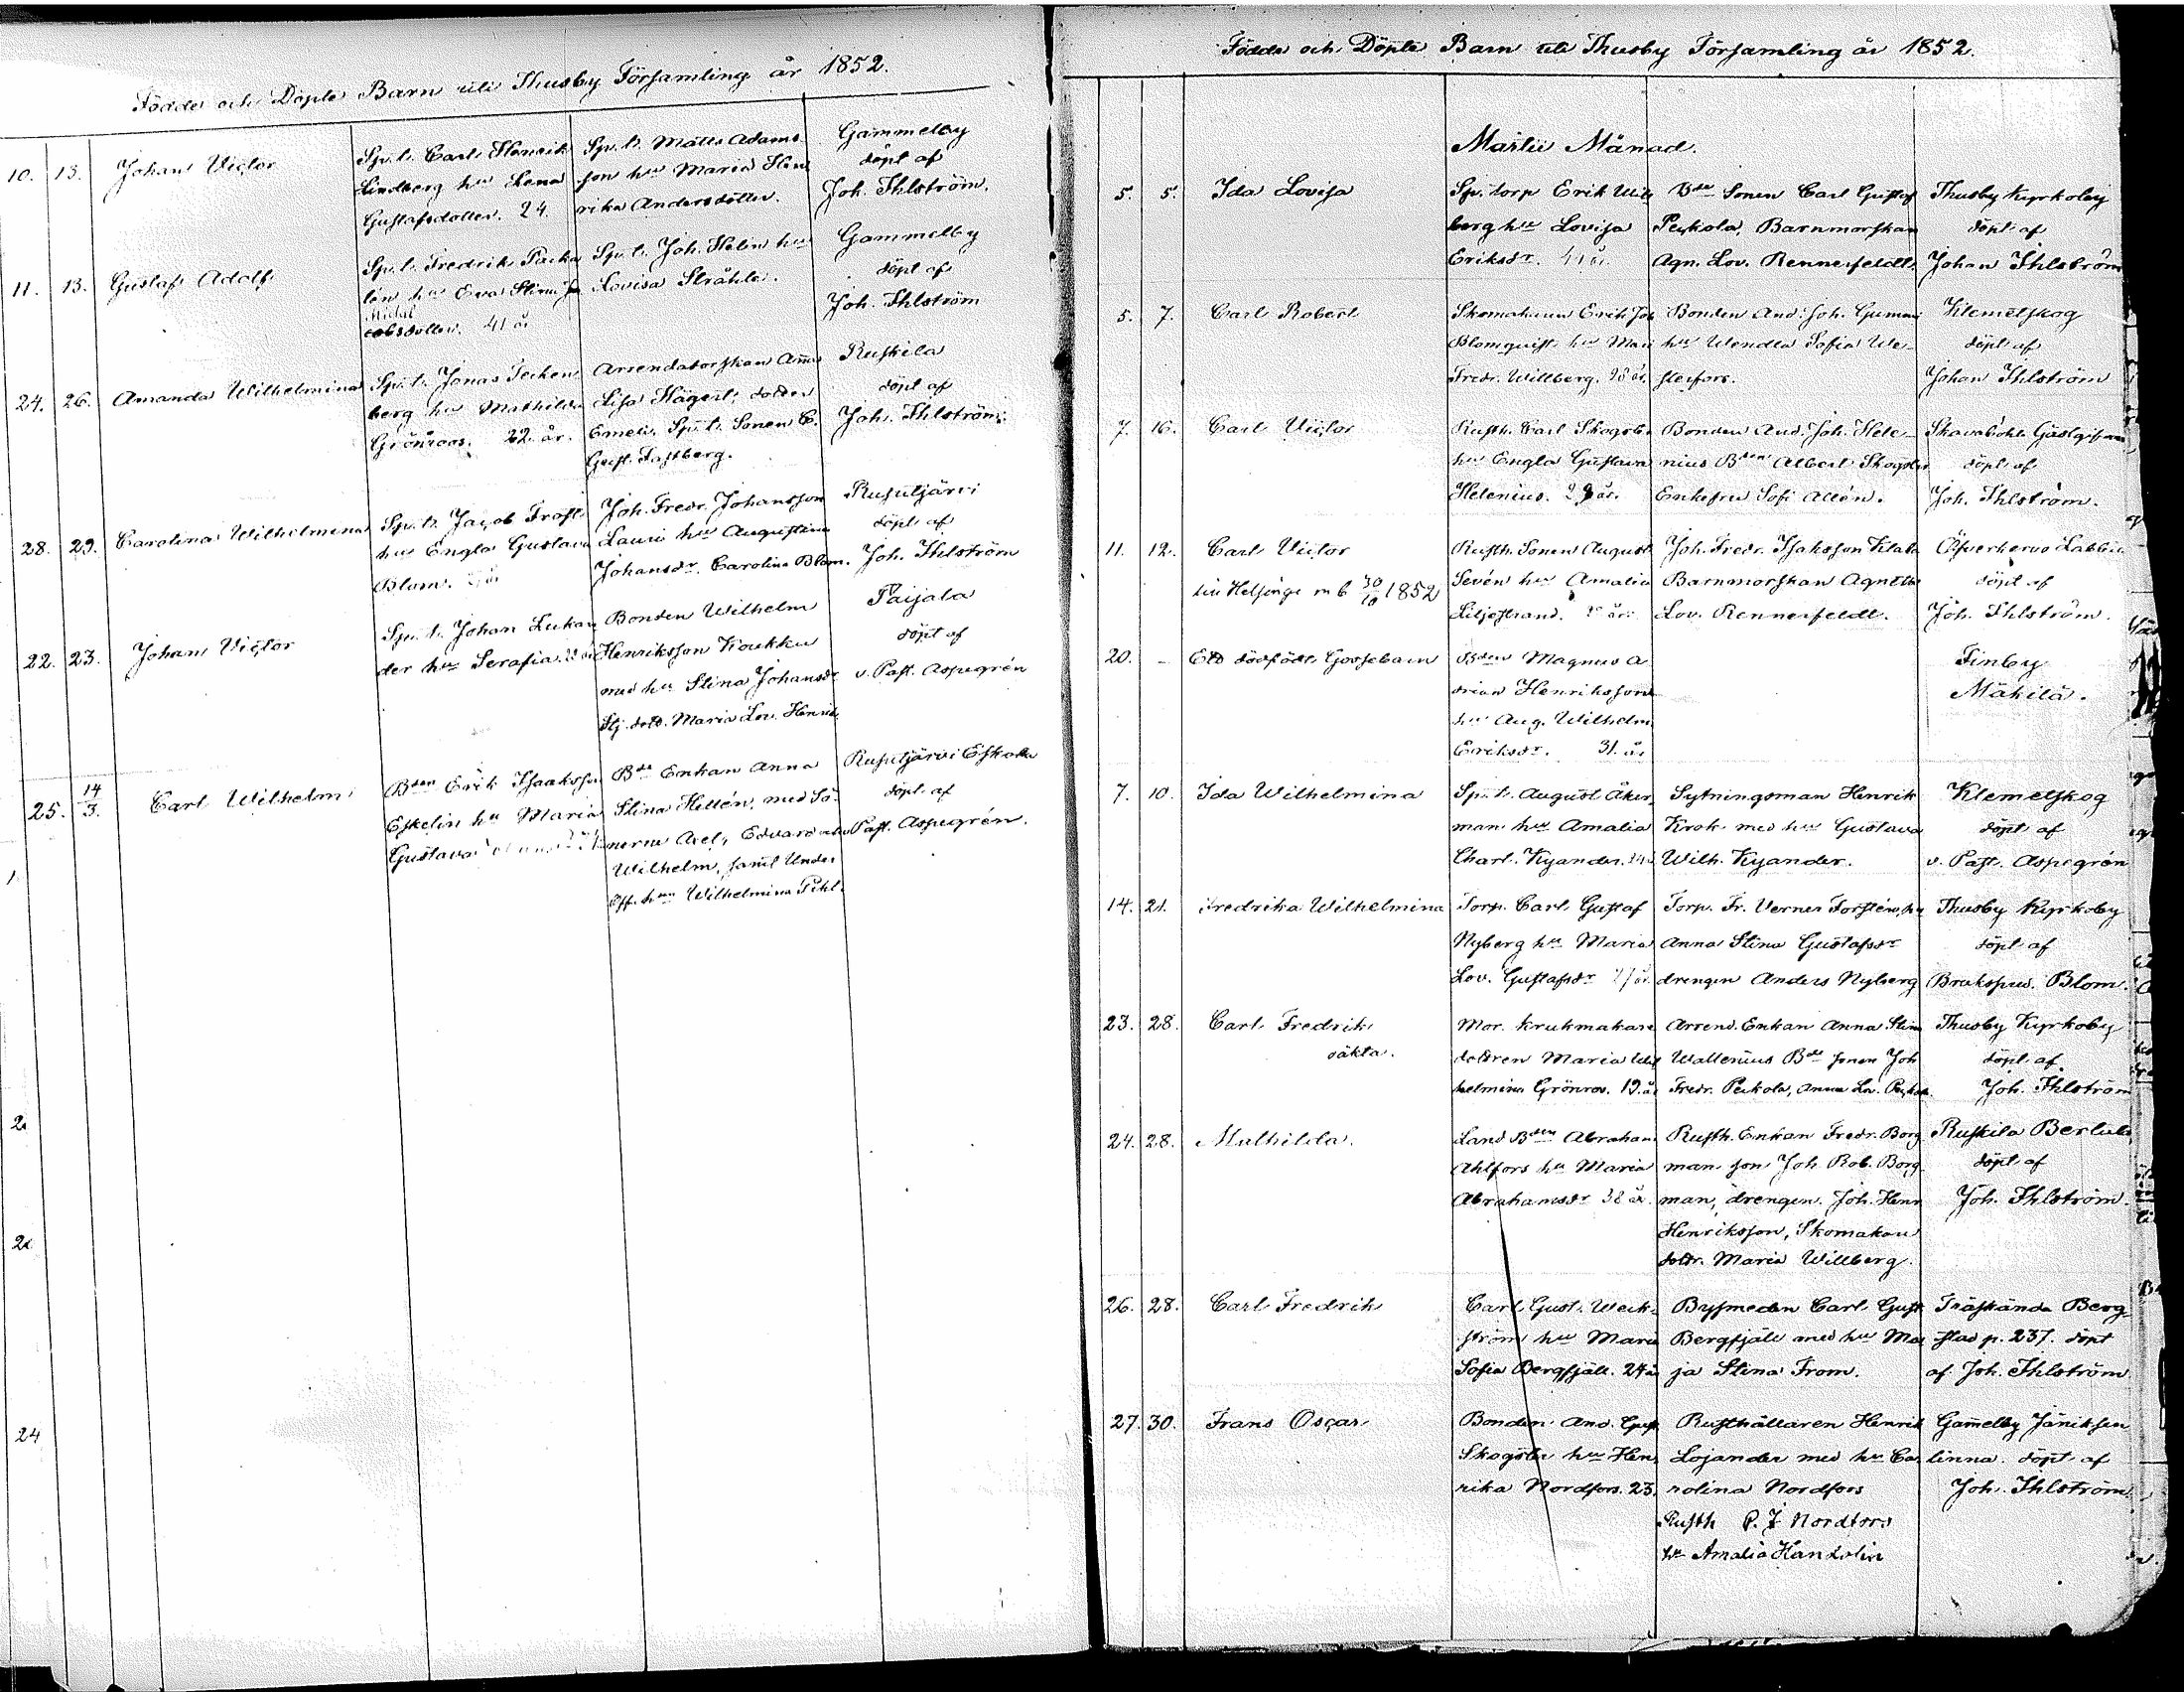 Födde och Döpte Barn uti Thusby Församling år 1852.
10. 13. Johan Victor
Sp. t. Carl Henrik
Lindberg hu Lena
Gustafsdotter. 24.
Sp. t. Matts Adams
son hu Maria Hen
rika Andersdotter.
Gammelby
döpt af
Joh. Ihlström.
11. 13. Gustaf Adolf
Sp. t. Fredrik Packa
lén hu Eva Stina Ja
Michel
cobsdotter. 41 år
Sp. t. Joh. Helin hu
Lovisa Stråhle.
Gammelby
döpt af
Joh. Ihlström
24. 26. Amanda Wilhelmina
Sp. t. Jonas Tecken
berg hu Mathilda
Grönroos. 22. år.
Arrendatorskan Anna
Lisa Hägert, dotter
Emeli. Sp. t. Sonen C.
Gust. Fastberg.
Ruskila
döpt af
Joh. Ihlström.
28. 29. Carolina Wilhelmina
Sp. t. Jacob Frost
hu Engla Gustava
Blom.
Joh. Fredr. Johansson
Lauri hu Augustina
Johansdr. Carolina Blom.
Rusutjärvi
döpt af
Joh. Ihlström
22. 23. Johan Victor
Sp. t. Johan Lukan
der hu Serafia.
Bonden Wilhelm
Henriksson Koukku
med hu Stina Johansdr
Stj. dott. Maria Lov. Henrik.
Paijala
döpt af
v. Past. Aspegrén
25. 14/3. Carl Wilhelm
Bden Erik Isaaksson
Eskelin hu Maria
Gustava
Bde Enkan Anna
Stina Hellén, med Sö-
nerne Axel, Edvard och
Wilhelm, samt Under
Off. hu Wilhelmina Pihl.
Rusutjärvi Eskola
döpt af
Past. Aspegrén.
1.
2.
2.
24
Födde och Döpte Barn uti Thusby Församling år 1852.
Martii Månad.
5. 5. Ida Lovisa
Sp. torp Erik Will
berg hu Lovisa
Eriksdr. 41 år.
Bde Sonen Carl Gustaf
Peckola, Barnmorskan
Agn. Lov. Rennerfeldt.
Thusby Kyrkoby
döpt af
Johan Ihlström
5. 7. Carl Robert
Skomakaren Erik Joh
Blomquist hu Mari
Fredr. Willberg. 28 år.
Bonden And. Joh. Gumm
hu Wendla Sofia We-
sterfors.
Klemetskog
döpt af
Johan Ihlström
7. 16. Carl Victor
Rusth. Carl Skogster
hu Engla Gustava
Helenius. 29 år.
Bonden And. Joh. Hele-
nius Bden Albert Skogster
Enkefru Sofi Allén.
Skavaböhle Gästgifveri
döpt af
Joh. Ihlström.
11. 12. Carl Victor
till Helsinge m b 30/10 1852
Rusth. Sonen August
Sevén hu Amalia
Liljestrand.
Joh. Fredr. Isaksson Klaka
Barnmorskan Agnetha
Lov. Rennerfeldt.
Öfverkervo Labbi
döpt af
Joh. Ihlström.
20. - Ett dödfödt Gossebarn
Bden Magnus A
drian Henriksson
hu Aug. Wilhelm.
Eriksdr. 31. år
Finby
Mäkilä.
7. 10. Ida Wilhelmina
Sp. t. August Åker
man hu Amalia
Charl. Kyander. 34 år
Sytningsman Henrik
Krok med hu Gustava
Wilh. Kyander.
Klemetskog
döpt af
v. Past. Aspegrén
14. 21. Fredrika Wilhelmina
Torp. Carl Gustaf
Nyberg hu Maria
Lov. Gustafsdr 27 år.
Torp. Fr. Verner Forstén, hu
Anna Stina Gustafsdr
drengen Anders Nyberg
Thusby Kyrkoby
döpt af
Brukspred. Blom.
23. 28. Carl Fredrik
oäkta.
Mor. krukmakare
dottren Maria Wil
helmina Grönros. 19. år
Arrend. Enkan Anna Stin
Wallenius Bde sonen Joh
Fredr. Peckola, Anna Lov. Peckola
Thusby Kyrkoby
döpt af
Joh. Ihlström
24. 28. Mathilda.
Land Bden Abraham
Ahlfors hu Maria
Abrahamsdr 38 år.
Rusth. Enkan Fredr. Borg
man son Joh. Rob. Borg
man, drengen Joh. Henr
Henriksson, Skomakau
dottr. Maria Willberg.
Ruskila Bertula
döpt af
Joh. Ihlström.
26. 28. Carl Fredrik
Carl Gust. Weck-
ström hu Maria
Sofia Bergfjäll. 24 år
Bysmeden Carl Gust
Bergfjäll med hu Ma
ja Stina From.
Träskända Berg-
stad p. 237. döpt
af Joh. Ihlström
27. 30. Frans Oscar
Bonden And. Gust
Skogster hu Hen
rika Nordfors. 23.
Rusthållaren Henrik
Lojander med hu Ca
rolina Nordfors
Rusth P. J Nordfors
hu Amalia Handolin
Gamelby Jäniksen
linna. döpt af
Joh. Ihlström.